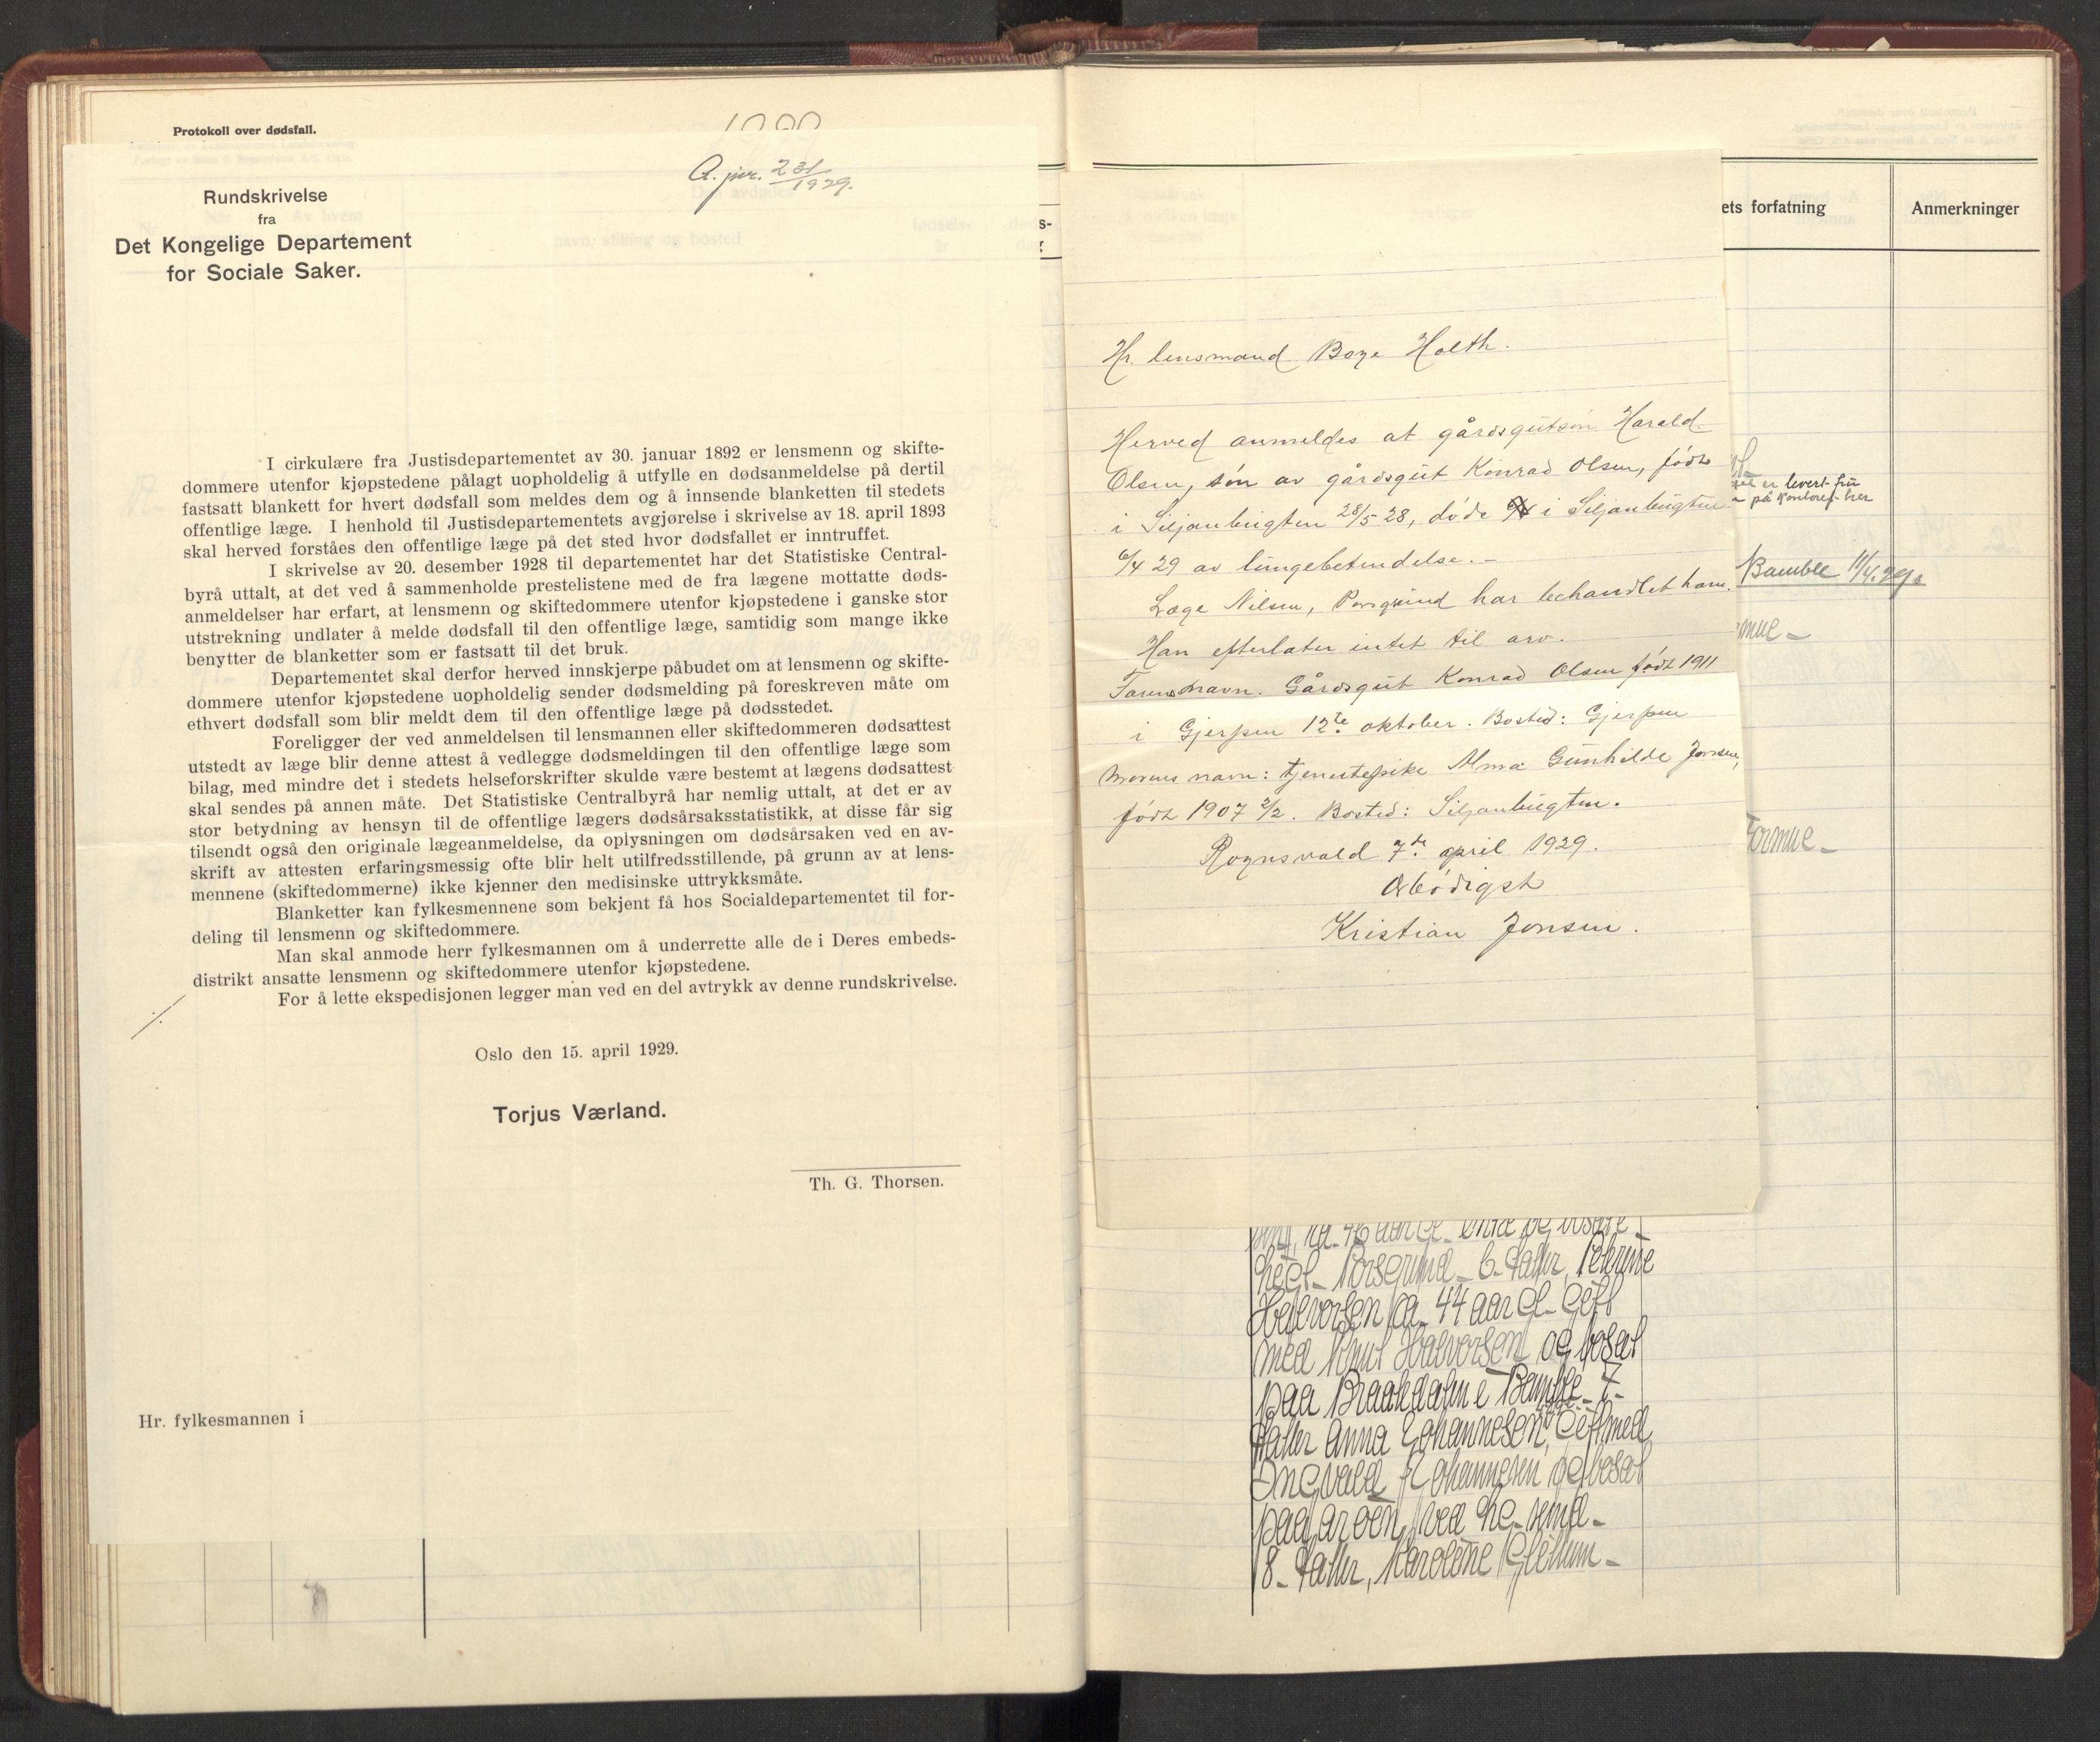 Protokoll over dødsfall.
A. jnr. 231/1929.
Rundskrivelse
fra
Det Kongelige Departement
for Sociale Saker.
I cirkulære fra Justisdepartementet av 30. januar 1892 er lensmenn og skifte-
dommere utenfor kjøpstedene pålagt uopholdelig å utfylle en dødsanmeldelse på dertil
fastsatt blankett for hvert dødsfall som meldes dem og å innsende blanketten til stedets
offentlige læge. I henhold til Justisdepartementets avgjørelse i skrivelse av 18. april 1893
skal herved forståes den offentlige læge på det sted hvor dødsfallet er inntruffet.
I skrivelse av 20. desember 1928 til departementet har det Statistiske Central-
byrå uttalt, at det ved å sammenholde prestelistene med de fra lægene mottatte døds-
anmeldelser har erfart, at lensmenn og skiftedommere utenfor kjøpstedene i ganske stor
utstrekning undlater å melde dødsfall til den offentlige læge, samtidig som mange ikke
benytter de blanketter som er fastsatt til det bruk.
Departementet skal derfor herved innskjerpe påbudet om at lensmenn og skifte-
dommere utenfor kjøpstedene uopholdelig sender dødsmelding på foreskreven måte om
ethvert dødsfall som blir meldt dem til den offentlige læge på dødsstedet.
Foreligger der ved anmeldelsen til lensmannen eller skiftedommeren dødsattest
utstedt av læge blir denne attest å vedlegge dødsmeldingen til den offentlige læge som
bilag, med mindre det i stedets helseforskrifter skulde være bestemt at lægens dødsattest
skal sendes på annen måte. Det Statistiske Centralbyrå har nemlig uttalt, at det er av
stor betydning av hensyn til de offentlige lægers dødsårsaksstatistikk, at disse får sig
tilsendt også den originale lægeanmeldelse, da oplysningen om dødsårsaken ved en av-
skrift av attesten erfaringsmessig ofte blir helt utilfredsstillende, på grunn av at lens-
mennene (skiftedommerne) ikke kjenner den medisinske uttrykksmåte.
Blanketter kan fylkesmennene som bekjent få hos Socialdepartementet til for-
deling til lensmenn og skiftedommere.
Man skal anmode herr fylkesmannen om å underrette alle de i Deres embeds-
distrikt ansatte lensmenn og skiftedommere utenfor kjøpstedene.
For å lette ekspedisjonen legger man ved en del avtrykk av denne rundskrivelse.
Oslo den 15. april 1929.
Torjus Værland.
Th. G. Thorsen.
Hr. fylkesmannen i
Hr. lensmand Boye Holth.
Herved anmeldes at gårdsgutsøn Harald
Olsen, søn av gårdsgut Konrad Olsen, født
i Siljanbugten 28/5 28, døde i Siljanbugten
6/4 29 av lungebetendelse. -
Læge Nilsen, Porsgrund har bechandlet ham.
Han efterlater intet til arv.
Farens navn. Gårdsgut Konrad Olsen født 1911
i Gjerpen 12te oktober. Bosted: Gjerpen
Morens navn: tjenestepike Alma Gunhilde Jonsen,
født 1907 2/2. Bosted: Siljanbugten.
Rognsvald 7de april 1929.
Ærbødigst
Kristian Jonsen.
ets forfatning
Anmerkninger
er levert fru
på kontoret her
Bamble 11/4. 29.
mue -
Formue -
ca. 46 aar gl. enke og bosatt
Porsgrund - 6. datter, Petrine
Halvorsen ca. 44 aar gl. gift
med Knut Halvorsen og bosat
paa Braatedalen i Bamble - 7.
datter Anna Johannesen, gift med
Ingvald Johannesen og bosat
paa ved
8. datter, Karoline